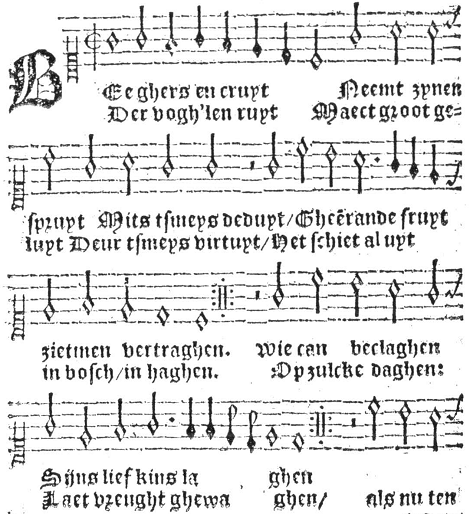 BEe ghers en cruyt Neemt zynen
Der vogh'len ruyt Maect groot ge=
spruyt Mits tsmeys deduyt/Gheërande fruyt
luyt Deur tsmeys virtuyt/Het schiet al uyt
zietmen vertraghen. Wie can beclaghen
in bosch/in haghen. Op zulcke daghen:
Sijns lief kins la ghen
Laet vreught ghewa ghen/ als nu ten